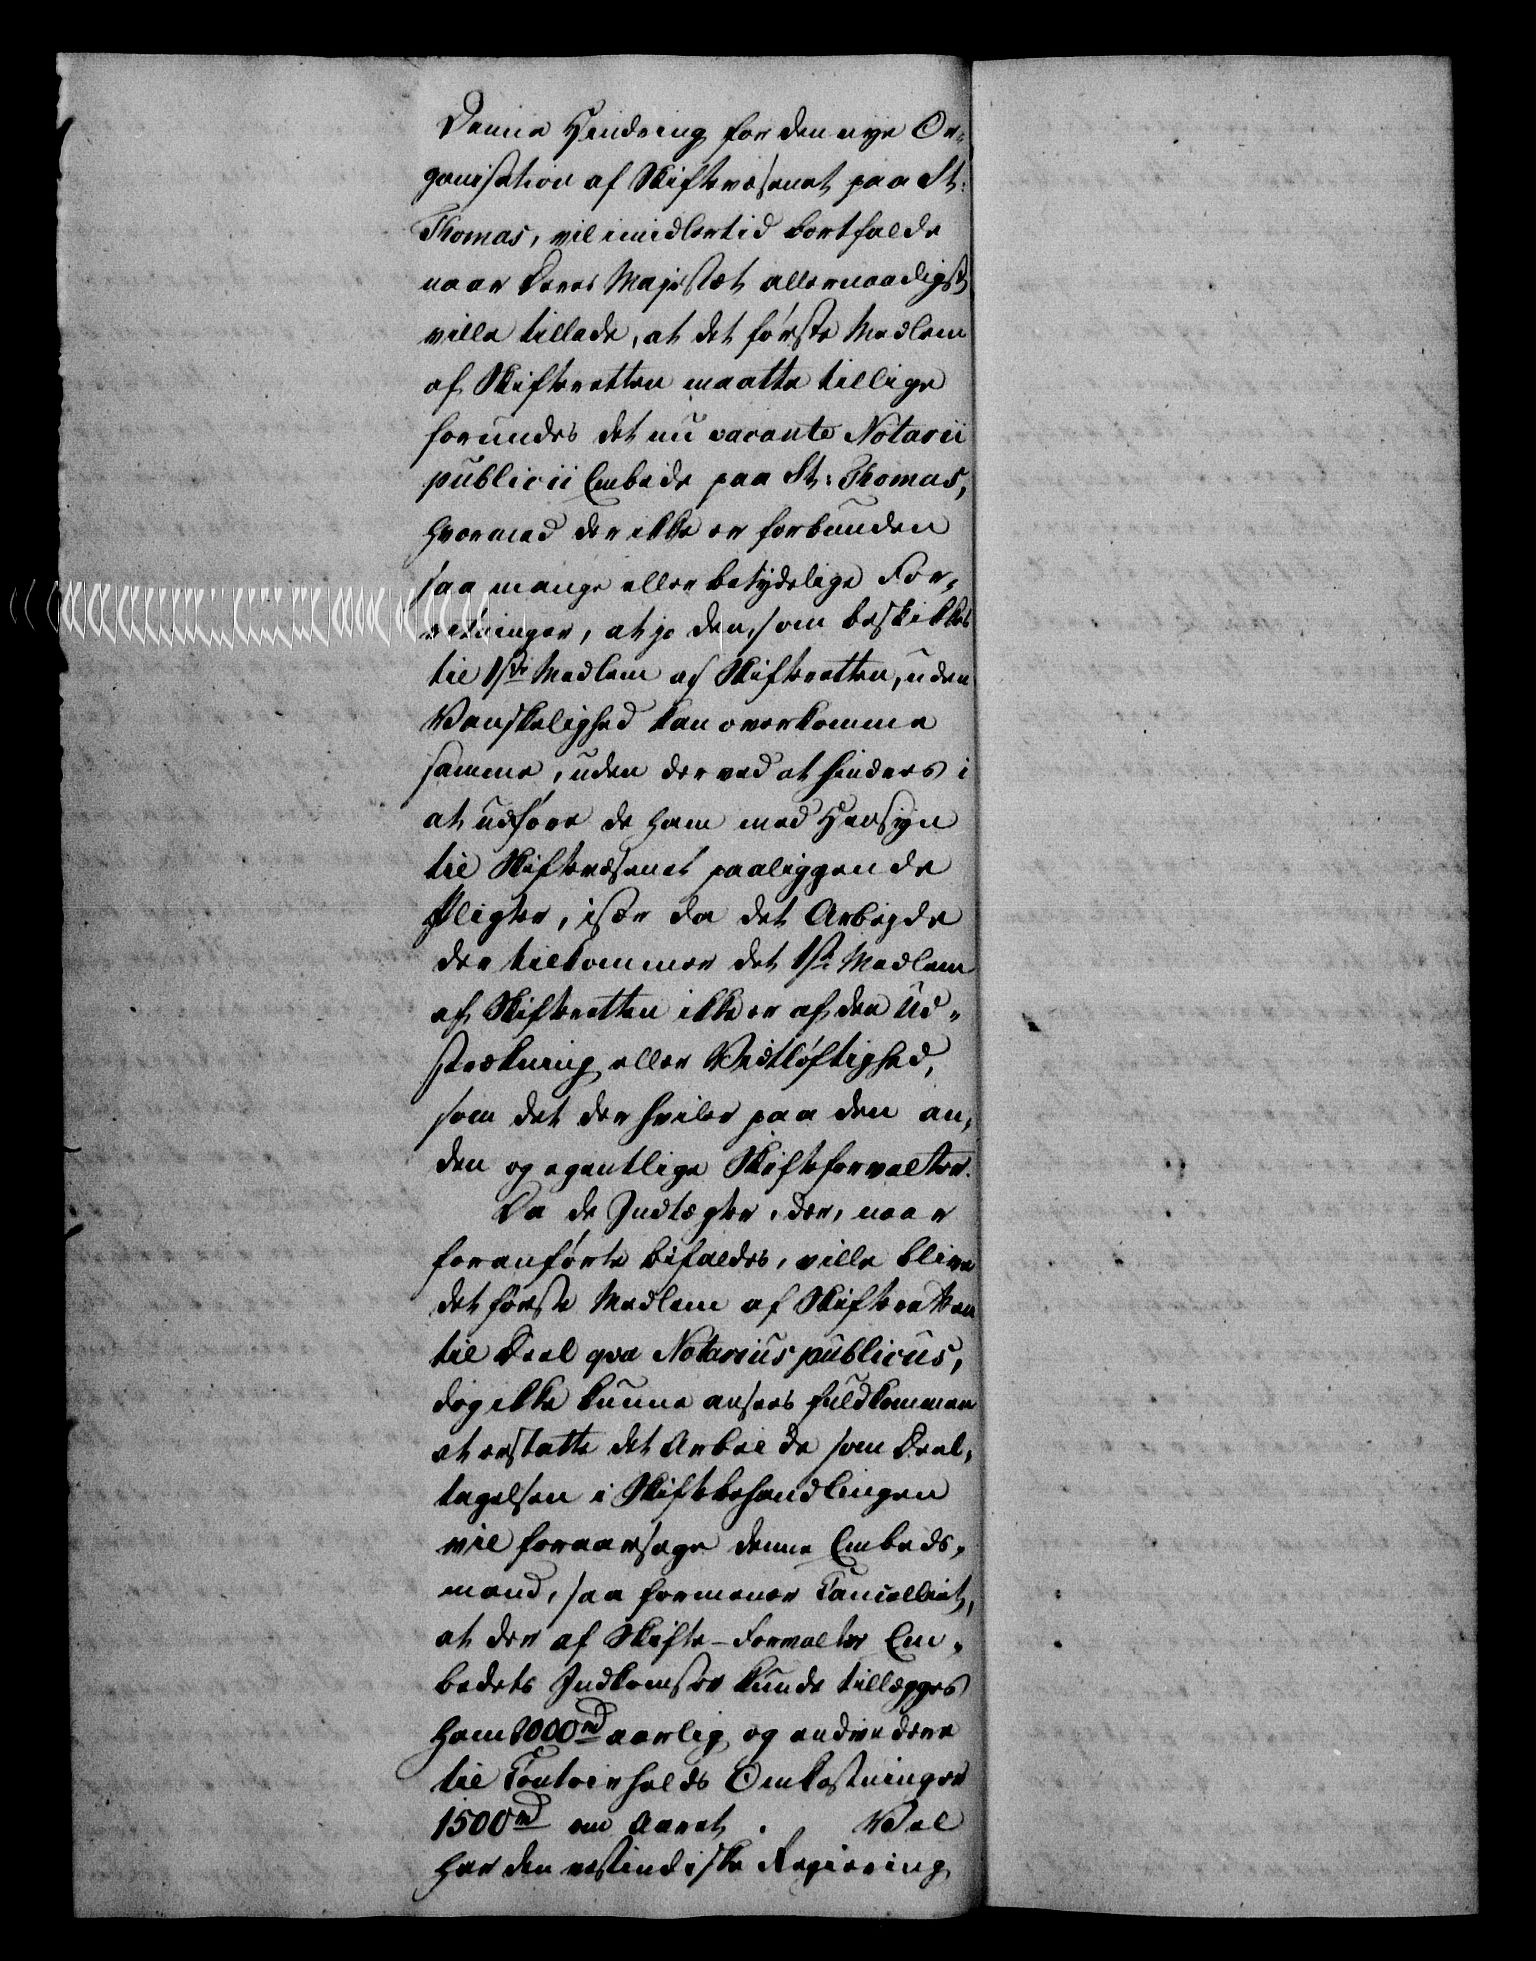 Denne Hindring for den nye Or-
ganisation af Skiftevæsenet paa St:
Thomas, vil imidlertid bortfalde
naar Deres Majestæt allernaadigst
ville tillade, at det første Medlem
af Skifteretten maatte tillige
forundes det nu vacante Notarii
publicii Embede paa St: Thomas,
hvormed der ikke er forbunden
saa mange eller betydelige For-
retninger, at jo den, som beskikkes
til 1ste Medlem af Skifteretten, uden
Vanskelighed kan overkomme
samme, uden derved at hindres i
at udføre de ham med Hensyn
til Skiftevæsenet paaliggende
Pligter, især da det Arbejde
der tilkommer det 1ste Medlem
af Skifteretten ikke er af den Ud-
strækning eller Vidtløftighed,
som det der hviler paa den an-
den og egentlige Skifteforvalter.
Da de Indtægter, der, naar
foranførte bifaldes, ville blive
det første Medlem af Skifteretten
til Deel qva Notarius publicus,
dog ikke kunne ansees fuldkommen
at erstatte det Arbeide som Deel-
tagelsen i Skiftebehandlingen
vil foraarsage denne Embeds-
mand, saa formener Cancelliet,
at der af Skifte-Forvalter Em-
bedets Indkomster kunde tillægges
ham 2000 rd aarlig og endvidere
til Contoirholds Omkostninger
1500 rd om Aaret. Vel
har den vestindiske Regiering